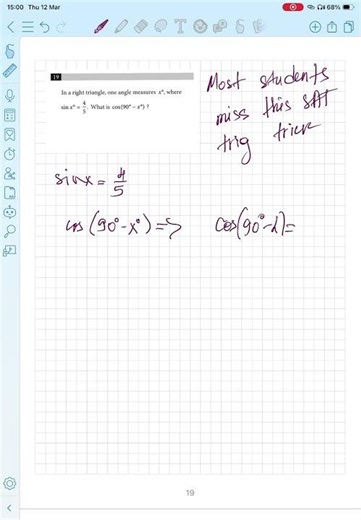 15:00 Thu 12 Mar
68%
19
In a right triangle, one angle measures x°, where
sin x° = 4/5. What is cos(90° − x°) ?
Most students
miss this SAT
trig trick
sin x = 4/5
cos (90° − x°) =>
cos(90° − α) =
19